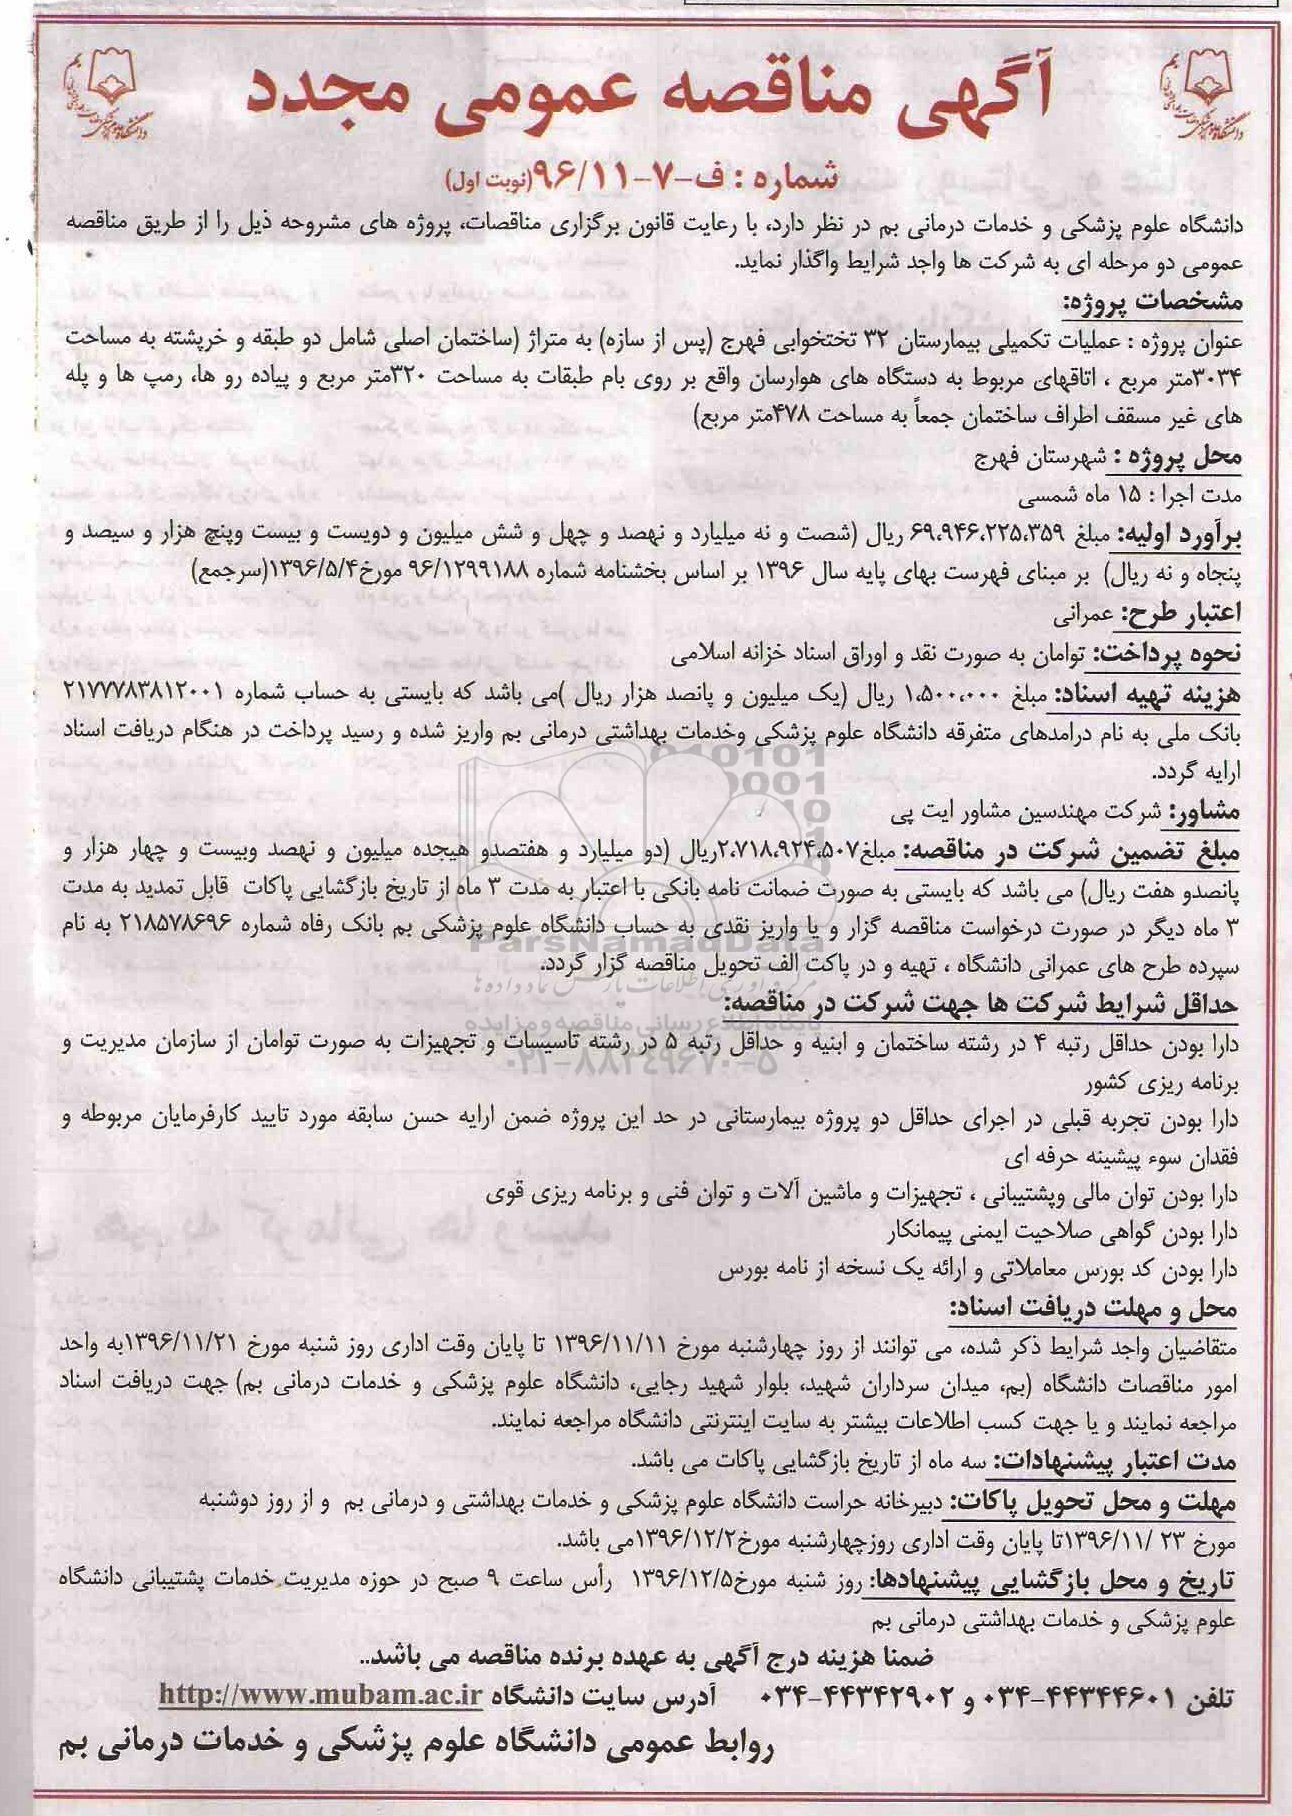 آگهی مناقصه عمومی مجدد
شماره : ف-۷-۹۶/۱۱(نوبت اول)
دانشگاه علوم پزشکی و خدمات درمانی بم در نظر دارد، با رعایت قانون برگزاری مناقصات، پروژه های مشروحه ذیل را از طریق مناقصه
عمومی دو مرحله ای به شرکت ها واجد شرایط واگذار نماید.
مشخصات پروژه:
عنوان پروژه : عملیات تکمیلی بیمارستان ۳۲ تختخوابی فهرج (پس از سازه) به متراژ (ساختمان اصلی شامل دو طبقه و خرپشته به مساحت
۳۰۳۴متر مربع ، اتاقهای مربوط به دستگاه های هوارسان واقع بر روی بام طبقات به مساحت ۳۲۰متر مربع و پیاده رو ها، رمپ ها و پله
های غیر مسقف اطراف ساختمان جمعاً به مساحت ۴۷۸متر مربع)
محل پروژه : شهرستان فهرج
مدت اجرا : ۱۵ ماه شمسی
برآورد اولیه: مبلغ ۶۹،۹۴۶،۲۲۵،۳۵۹ ریال (شصت و نه میلیارد و نهصد و چهل و شش میلیون و دویست و بیست وپنچ هزار و سیصد و
پنجاه و نه ریال) بر مبنای فهرست بهای پایه سال ۱۳۹۶ بر اساس بخشنامه شماره ۹۶/۱۲۹۹۱۸۸ مورخ۱۳۹۶/۵/۴(سرجمع)
اعتبار طرح: عمرانی
نحوه پرداخت: توامان به صورت نقد و اوراق اسناد خزانه اسلامی
هزینه تهیه اسناد: مبلغ ۱،۵۰۰،۰۰۰ ریال (یک میلیون و پانصد هزار ریال )می باشد که بایستی به حساب شماره ۲۱۷۷۷۸۳۸۱۲۰۰۱
بانک ملی به نام درامدهای متفرقه دانشگاه علوم پزشکی وخدمات بهداشتی درمانی بم واریز شده و رسید پرداخت در هنگام دریافت اسناد
ارایه گردد.
مشاور: شرکت مهندسین مشاور ایت پی
مبلغ تضمین شرکت در مناقصه: مبلغ۲،۷۱۸،۹۲۴،۵۰۷ریال (دو میلیارد و هفتصدو هیجده میلیون و نهصد وبیست و چهار هزار و
پانصدو هفت ریال) می باشد که بایستی به صورت ضمانت نامه بانکی با اعتبار به مدت ۳ ماه از تاریخ بازگشایی پاکات قابل تمدید به مدت
۳ ماه دیگر در صورت درخواست مناقصه گزار و یا واریز نقدی به حساب دانشگاه علوم پزشکی بم بانک رفاه شماره ۲۱۸۵۷۸۶۹۶ به نام
سپرده طرح های عمرانی دانشگاه ، تهیه و در پاکت الف تحویل مناقصه گزار گردد.
حداقل شرایط شرکت ها جهت شرکت در مناقصه:
دارا بودن حداقل رتبه ۴ در رشته ساختمان و ابنیه و حداقل رتبه ۵ در رشته تاسیسات و تجهیزات به صورت توامان از سازمان مدیریت و
برنامه ریزی کشور
دارا بودن تجربه قبلی در اجرای حداقل دو پروژه بیمارستانی در حد این پروژه ضمن ارایه حسن سابقه مورد تایید کارفرمایان مربوطه و
فقدان سوء پیشینه حرفه ای
دارا بودن توان مالی وپشتیبانی ، تجهیزات و ماشین آلات و توان فنی و برنامه ریزی قوی
دارا بودن گواهی صلاحیت ایمنی پیمانکار
دارا بودن کد بورس معاملاتی و ارائه یک نسخه از نامه بورس
محل و مهلت دریافت اسناد:
متقاضیان واجد شرایط ذکر شده، می توانند از روز چهارشنبه مورخ ۱۳۹۶/۱۱/۱۱ تا پایان وقت اداری روز شنبه مورخ ۱۳۹۶/۱۱/۲۱به واحد
امور مناقصات دانشگاه (بم، میدان سرداران شهید، بلوار شهید رجایی، دانشگاه علوم پزشکی و خدمات درمانی بم) جهت دریافت اسناد
مراجعه نمایند و یا جهت کسب اطلاعات بیشتر به سایت اینترنتی دانشگاه مراجعه نمایند.
مدت اعتبار پیشنهادات: سه ماه از تاریخ بازگشایی پاکات می باشد.
مهلت و محل تحویل پاکات: دبیرخانه حراست دانشگاه علوم پزشکی و خدمات بهداشتی و درمانی بم و از روز دوشنبه
مورخ ۲۳ /۱۳۹۶/۱۱تا پایان وقت اداری روزچهارشنبه مورخ۱۳۹۶/۱۲/۲می باشد.
تاریخ و محل بازگشایی پیشنهادها: روز شنبه مورخ۱۳۹۶/۱۲/۵ رأس ساعت ۹ صبح در حوزه مدیریت خدمات پشتیبانی دانشگاه
علوم پزشکی و خدمات بهداشتی درمانی بم
ضمنا هزینه درج آگهی به عهده برنده مناقصه می باشد..
تلفن ۴۴۳۴۴۶۰۱-۰۳۴ و ۴۴۳۴۲۹۰۲-۰۳۴ آدرس سایت دانشگاه http://www.mubam.ac.ir
روابط عمومی دانشگاه علوم پزشکی و خدمات درمانی بم
ParsNamadData
پایگاه اطلاع رسانی مناقصه و مزایده
۰۲۱-۸۸۳۴۹۶۷۰-۵